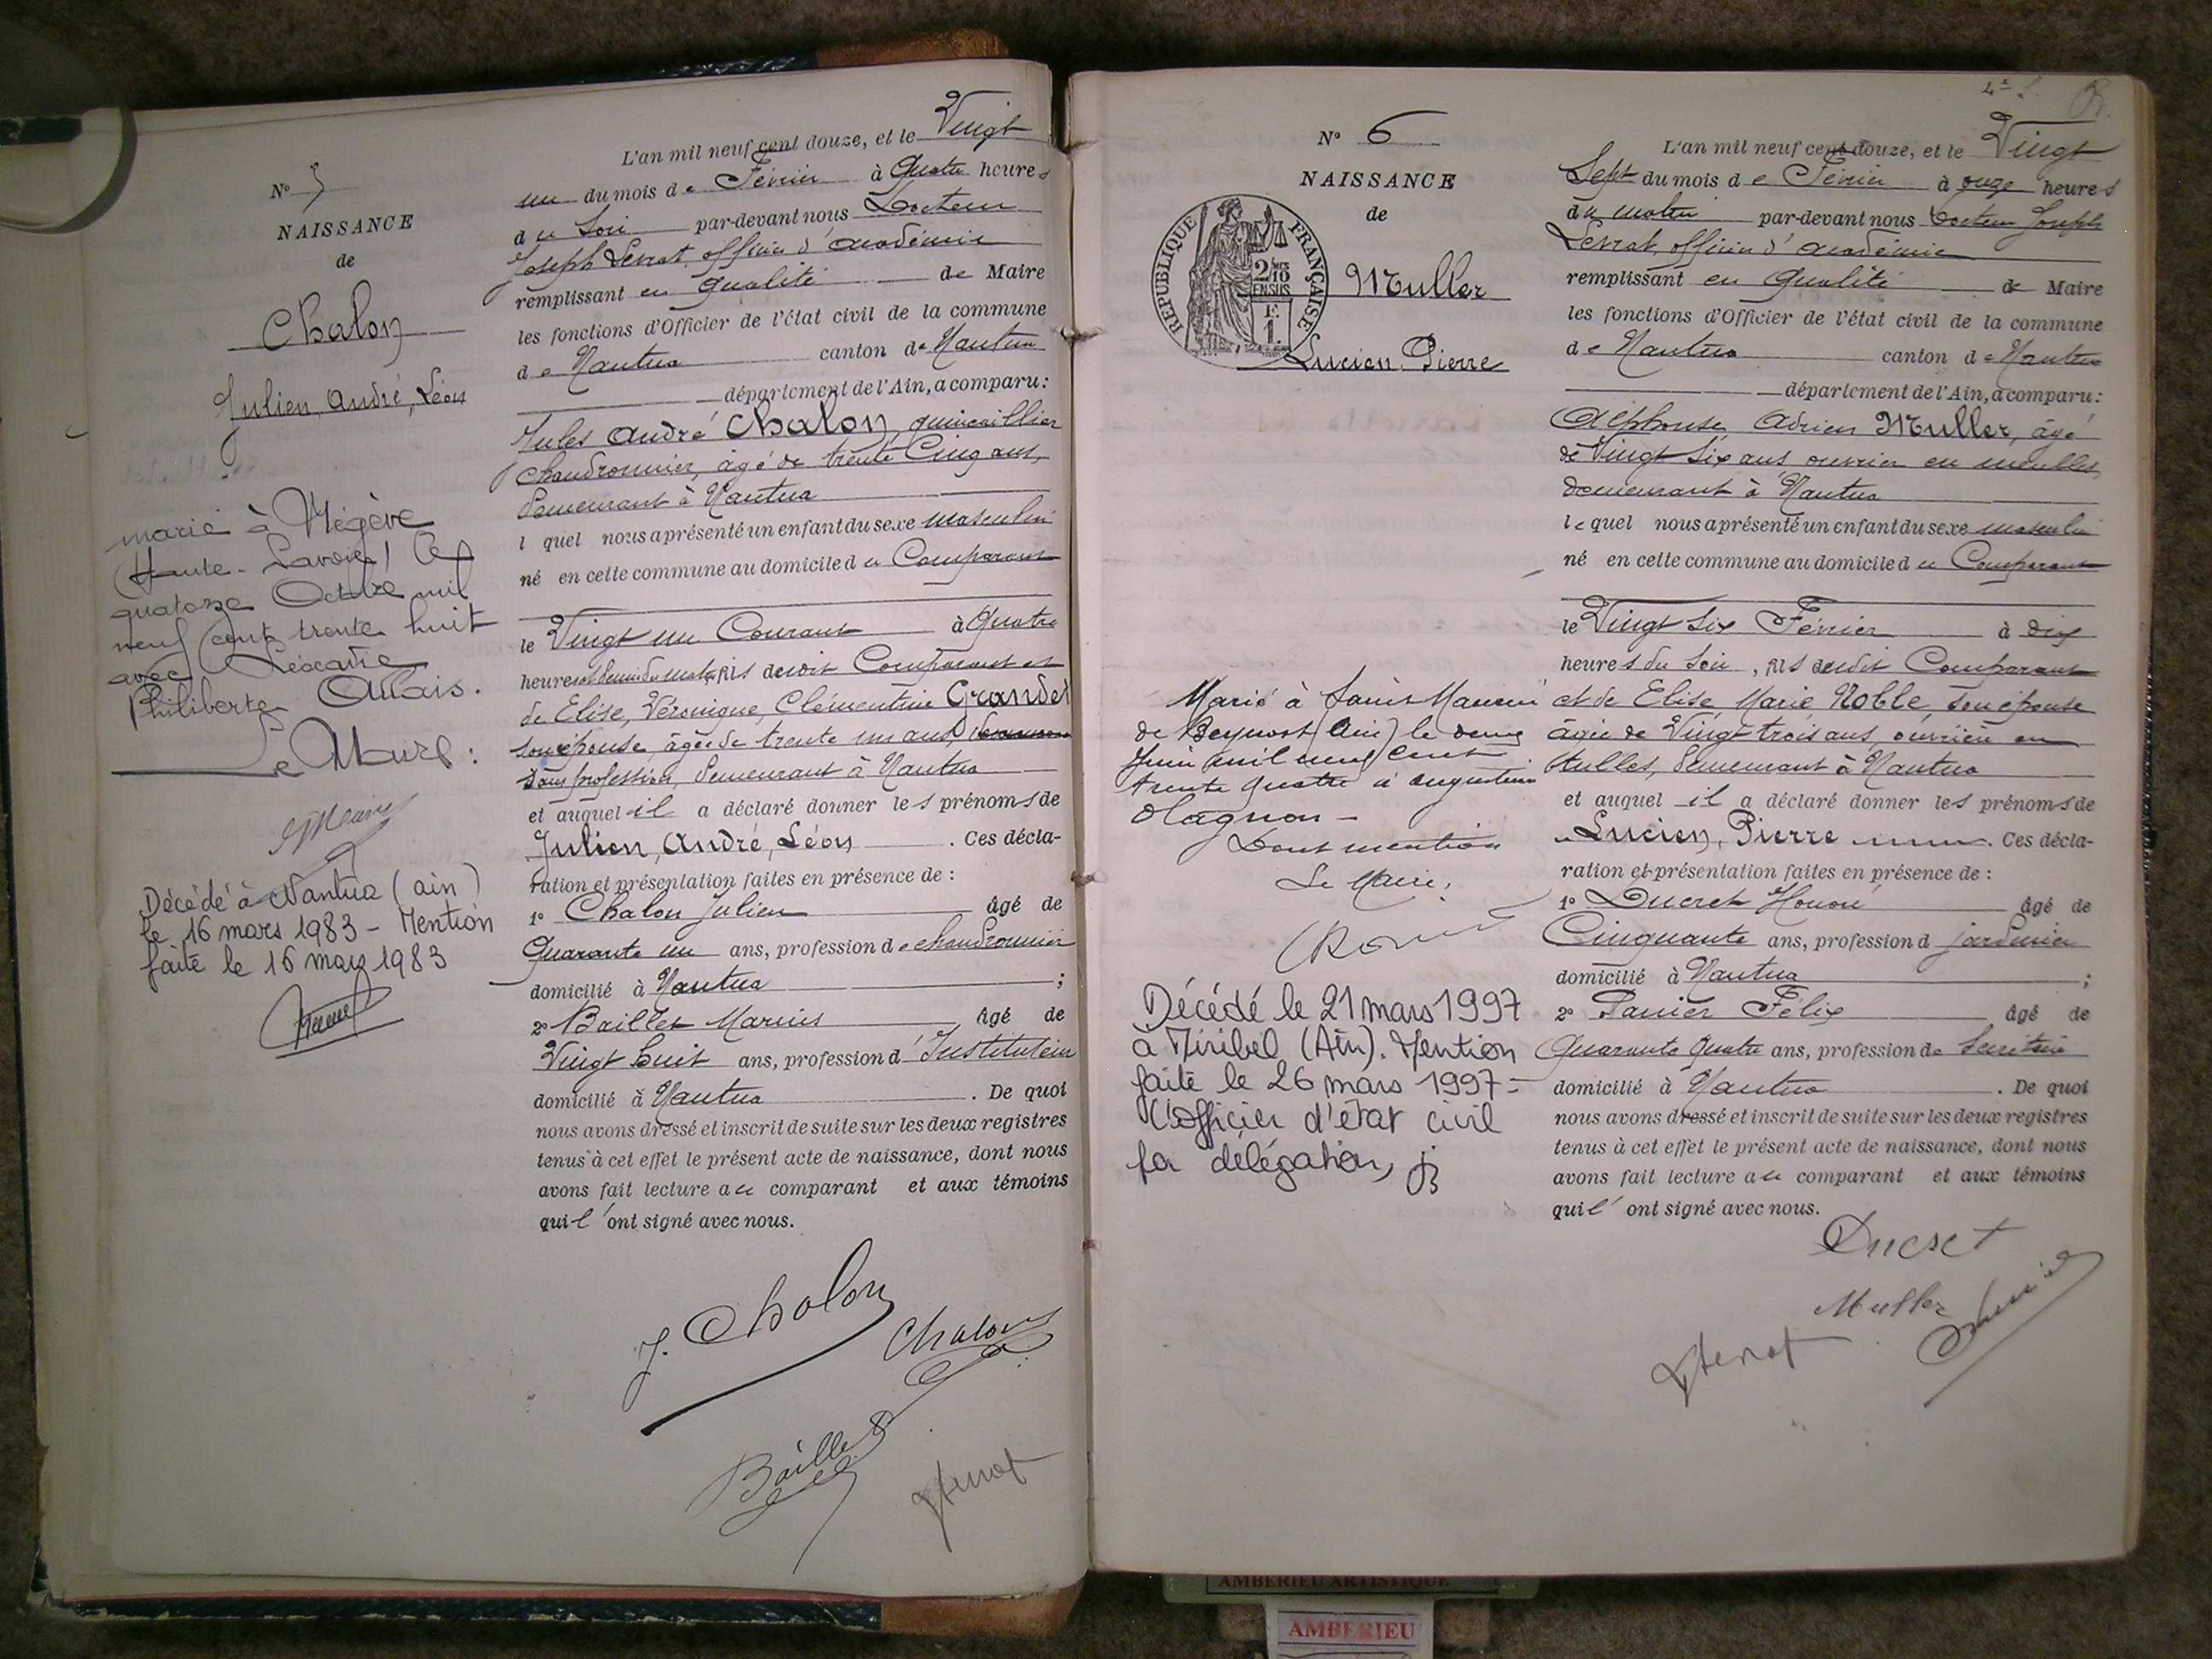 N° 5
NAISSANCE
de
Chalon
Julien, André, Léon
marié à Mégève
(Haute-Savoie) le
quatorze Octobre mil
neuf cent trente huit
avec Léocadie
Philiberte Allais.
Le Maire :
Décédé à Nantua (ain)
le 16 mars 1983 - Mention
faite le 16 mars 1983
L'an mil neuf cent douze, et le Vingt
un du mois de Février à Quatre heures
du Soir par-devant nous Docteur
Joseph Levrat, officier d'académie
remplissant en qualité de Maire
les fonctions d'Officier de l'état civil de la commune
de Nantua canton de Nantua
département de l'Ain, a comparu :
Jules André Chalon, quincaillier
chaudronnier, âgé de trente Cinq ans,
demeurant à Nantua
l quel nous a présenté un enfant du sexe masculin
né en cette commune au domicile du Comparant
le Vingt un Courant à Quatre
heures et demie du matin, fils dudit Comparant et
de Elise, Véronique, Clémentine Grandet
son épouse, âgée de trente un ans,
sans profession, demeurant à Nantua
et auquel il a déclaré donner les prénoms de
Julien, André, Léon . Ces décla-
ration et présentation faites en présence de :
1° Chalon Julien âgé de
Quarante un ans, profession de chaudronnier
domicilié à Nantua ;
2° Baillet Marius âgé de
Vingt huit ans, profession d'Instituteur
domicilié à Nantua . De quoi
nous avons dressé et inscrit de suite sur les deux registres
tenus à cet effet le présent acte de naissance, dont nous
avons fait lecture au comparant et aux témoins
qui l'ont signé avec nous.
J. Chalon
Chalon
Baillet
N° 6
NAISSANCE
de
RÉPUBLIQUE FRANÇAISE
2/10
EN SUS
F.
1.
Muller
Lucien Pierre
Marié à Saint Maurice
de Beynost (Ain) le deux
Juin mil neuf cent
trente quatre à Augustine
Olagnon -
Dont mention
Le Maire,
Décédé le 21 mars 1997
à Miribel (Ain). Mention
faite le 26 mars 1997 =
L'officier d'état civil
par délégation,
L'an mil neuf cent douze, et le Vingt
Sept du mois de Février à onze heures
du matin par-devant nous Docteur Joseph
Levrat, officier d'académie
remplissant en qualité de Maire
les fonctions d'Officier de l'état civil de la commune
de Nantua canton de Nantua
département de l'Ain, a comparu :
Alphonse Adrien Muller, âgé
de Vingt Six ans, ouvrier en meubles,
demeurant à Nantua
lequel nous a présenté un enfant du sexe masculin
né en cette commune au domicile du Comparant
le Vingt Six Février à dix
heures du Soir, fils dudit Comparant
et de Elise Marie Noble, son épouse
âgée de Vingt trois ans, ouvrière en
tulles, demeurant à Nantua
et auquel il a déclaré donner les prénoms de
Lucien, Pierre . Ces décla-
ration et présentation faites en présence de :
1° Ducret Honoré âgé de
Cinquante ans, profession d jardinier
domicilié à Nantua ;
2° Panier Félix âgé de
Quarante Quatre ans, profession de Secrétaire
domicilié à Nantua . De quoi
nous avons dressé et inscrit de suite sur les deux registres
tenus à cet effet le présent acte de naissance, dont nous
avons fait lecture au comparant et aux témoins
qui l'ont signé avec nous.
Ducret
Muller
AMBERIEU ARTISTIQUE
AMBERIEU